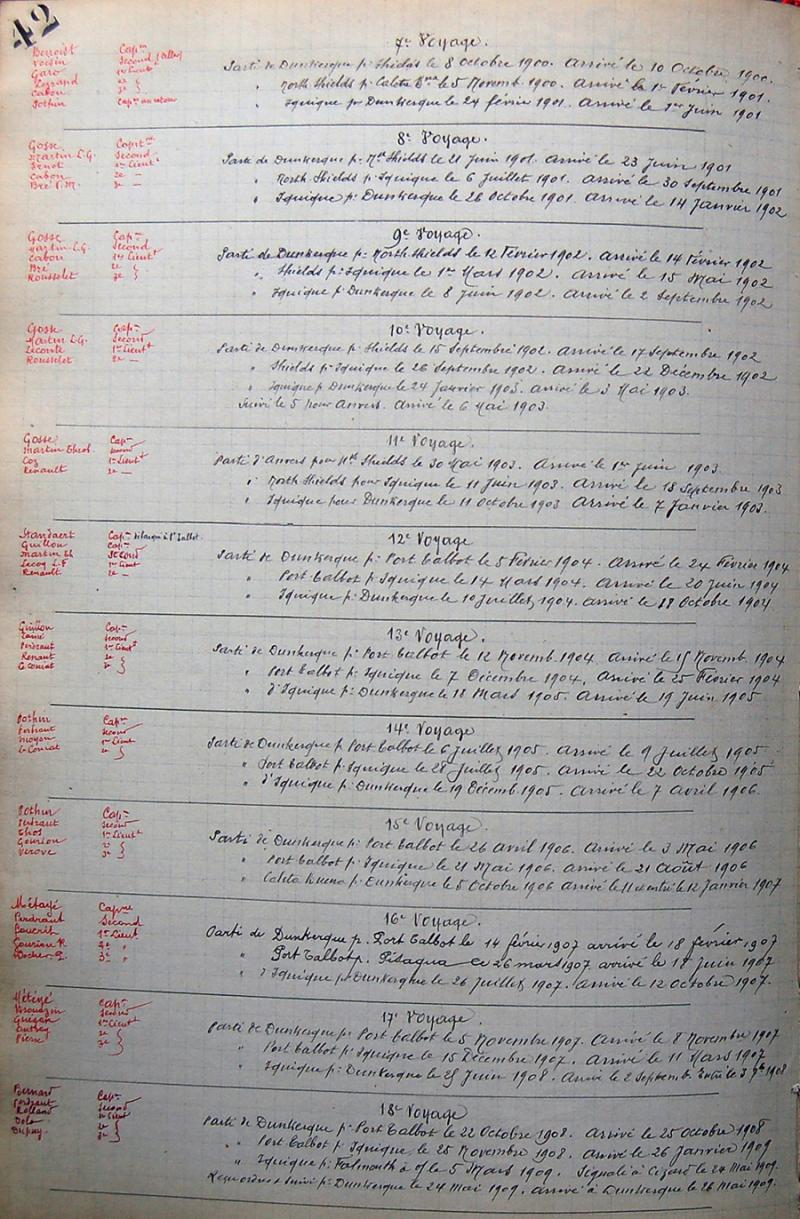 42
7e Voyage.
Benoist Capne
Voisin Second
Garo 1er Lieut
Legrand 2e
Cabon 3e
Pothin Capne au retour
Parti de Dunkerque p. Shields le 8 Octobre 1900. Arrivé le 10 Octobre 1900.
" North Shields p. Caleta Bna le 5 Novemb. 1900. Arrivé le 1er Février 1901.
" Iquique pr Dunkerque le 24 février 1901. Arrivé le 1er Juin 1901
8e Voyage.
Gosse Capitne
Martin L.G. Second
1er Lieut
Cabon 2e —
Bré P.M. 3e —
Parti de Dunkerque p. Nth Shields le 21 Juin 1901. Arrivé le 23 Juin 1901
" North Shields p. Iquique le 6 Juillet 1901. Arrivé le 30 Septembre 1901
" Iquique p. Dunkerque le 26 Octobre 1901. Arrivé le 14 Janvier 1902
9e Voyage.
Gosse Capne
Martin L.G. Second
Cabon 1er Lieutt
Bré 2e
Rousselet 3e
Parti de Dunkerque p. North Shields le 12 Février 1902. Arrivé le 14 Février 1902
" Shields p. Iquique le 1er Mars 1902. Arrivé le 15 Mai 1902
" Iquique p. Dunkerque le 8 Juin 1902. Arrivé le 2 Septembre 1902
10e Voyage.
Gosse Capne
Martin L.G. Second
Leconte 1er Lieutt
Rousselet 2e —
Parti de Dunkerque p. Shields le 15 Septembre 1902. Arrivé le 17 Septembre 1902
" Shields p. Iquique le 26 Septembre 1902. Arrivé le 22 Décembre 1902
" Iquique p. Dunkerque le 24 Janvier 1903. Arrivé le 3 Mai 1903.
Suivi le 5 pour Anvers. Arrivé le 6 Mai 1903.
11e Voyage.
Gosse Capne
Martin Theop. Second
Coz 1er Lieutt
Renault 2e —
Parti d'Anvers pour Nth Shields le 30 Mai 1903. Arrivé le 1er Juin 1903
" North Shields pour Iquique le 11 Juin 1903. Arrivé le 18 Septembre 1903
" Iquique pour Dunkerque le 11 Octobre 1903 Arrivé le 7 Janvier 1903.
12e Voyage
Standaert Capne débarqué à Pt Talbot.
Guillou Capne
Martin Th Second
Lecoq L.F 1er Lieut
Renault 2e —
Parti de Dunkerque p. Port Talbot le 5 Février 1904. Arrivé le 24 Février 1904
" Port Talbot p. Iquique le 14 Mars 1904. Arrivé le 20 Juin 1904
" Iquique p. Dunkerque le 10 Juillet 1904. Arrivé le 18 Octobre 1904
13e Voyage.
Guillou Capne
Second
Perdraut 1er Lieutt
Renaut 2e
Le Conniat 3e
Parti de Dunkerque p. Port Talbot le 12 Novemb. 1904 Arrivé le 15 Novemb. 1904
" Port Talbot p. Iquique le 7 Décembre 1904. Arrivé le 25 Février 1904
" d'Iquique p. Dunkerque le 18 Mars 1905. Arrivé le 19 Juin 1905
14e Voyage.
Pothin Capne
Perdraut Second
Moyon 1er Lieut
Le Conniat 2e
Parti de Dunkerque p. Port Talbot le 6 Juillet 1905. Arrivé le 9 Juillet 1905
" Port Talbot p. Iquique le 28 Juillet 1905. Arrivé le 22 Octobre 1905
" d'Iquique p. Dunkerque le 19 Décemb. 1905. Arrivé le 7 Avril 1906.
15e Voyage.
Pothin Capne
Perdraut Second
Thos 1er Lieutt
Gourion 2e
Verove 3e
Parti de Dunkerque p. Port Talbot le 26 Avril 1906. Arrivé le 3 Mai 1906
" Port Talbot p. Iquique le 21 Mai 1906. Arrivé le 21 Août 1906
" Caleta Buena p. Dunkerque le 5 Octobre 1906 Arrivé le 11 entré le 12 Janvier 1907
16e Voyage
Métayé Capne
Perdraut Second
1er Lieut
Gourion R. 2e "
3e "
Parti de Dunkerque p. Port Talbot le 14 février 1907 arrivé le 18 février 1907
" Port Talbot p. Pisagua le 26 mars 1907 arrivé le 17 Juin 1907
" d'Iquique p. Dunkerque le 26 Juillet 1907. Arrivé le 12 Octobre 1907.
17e Voyage
Métayé Capne
Second
1er Lieutt
2e
Pierre 3e
Parti de Dunkerque p. Port Talbot le 5 Novembre 1907. Arrivé le 8 Novembre 1907
" Port Talbot p. Iquique le 15 Décembre 1907. Arrivé le 11 Mars 1907
" Iquique p. Dunkerque le 25 Juin 1908. Arrivé le 2 Septemb. Entré le 3 7b 1908
18e Voyage
Bernard Capne
Perdraut Second
Rolland 1er Lieut
Dolo 2e
Dupuy 3e
Parti de Dunkerque p. Port Talbot le 22 Octobre 1908. Arrivé le 25 Octobre 1908
" Port Talbot p. Iquique le 25 Novembre 1908. Arrivé le 26 Janvier 1909
" Iquique p. Falmouth à o/ le 5 Mars 1909. Signalé à Lizard le 24 Mai 1909.
Reçu ordres & suivi p. Dunkerque le 24 Mai 1909. Arrivé à Dunkerque le 26 Mai 1909.